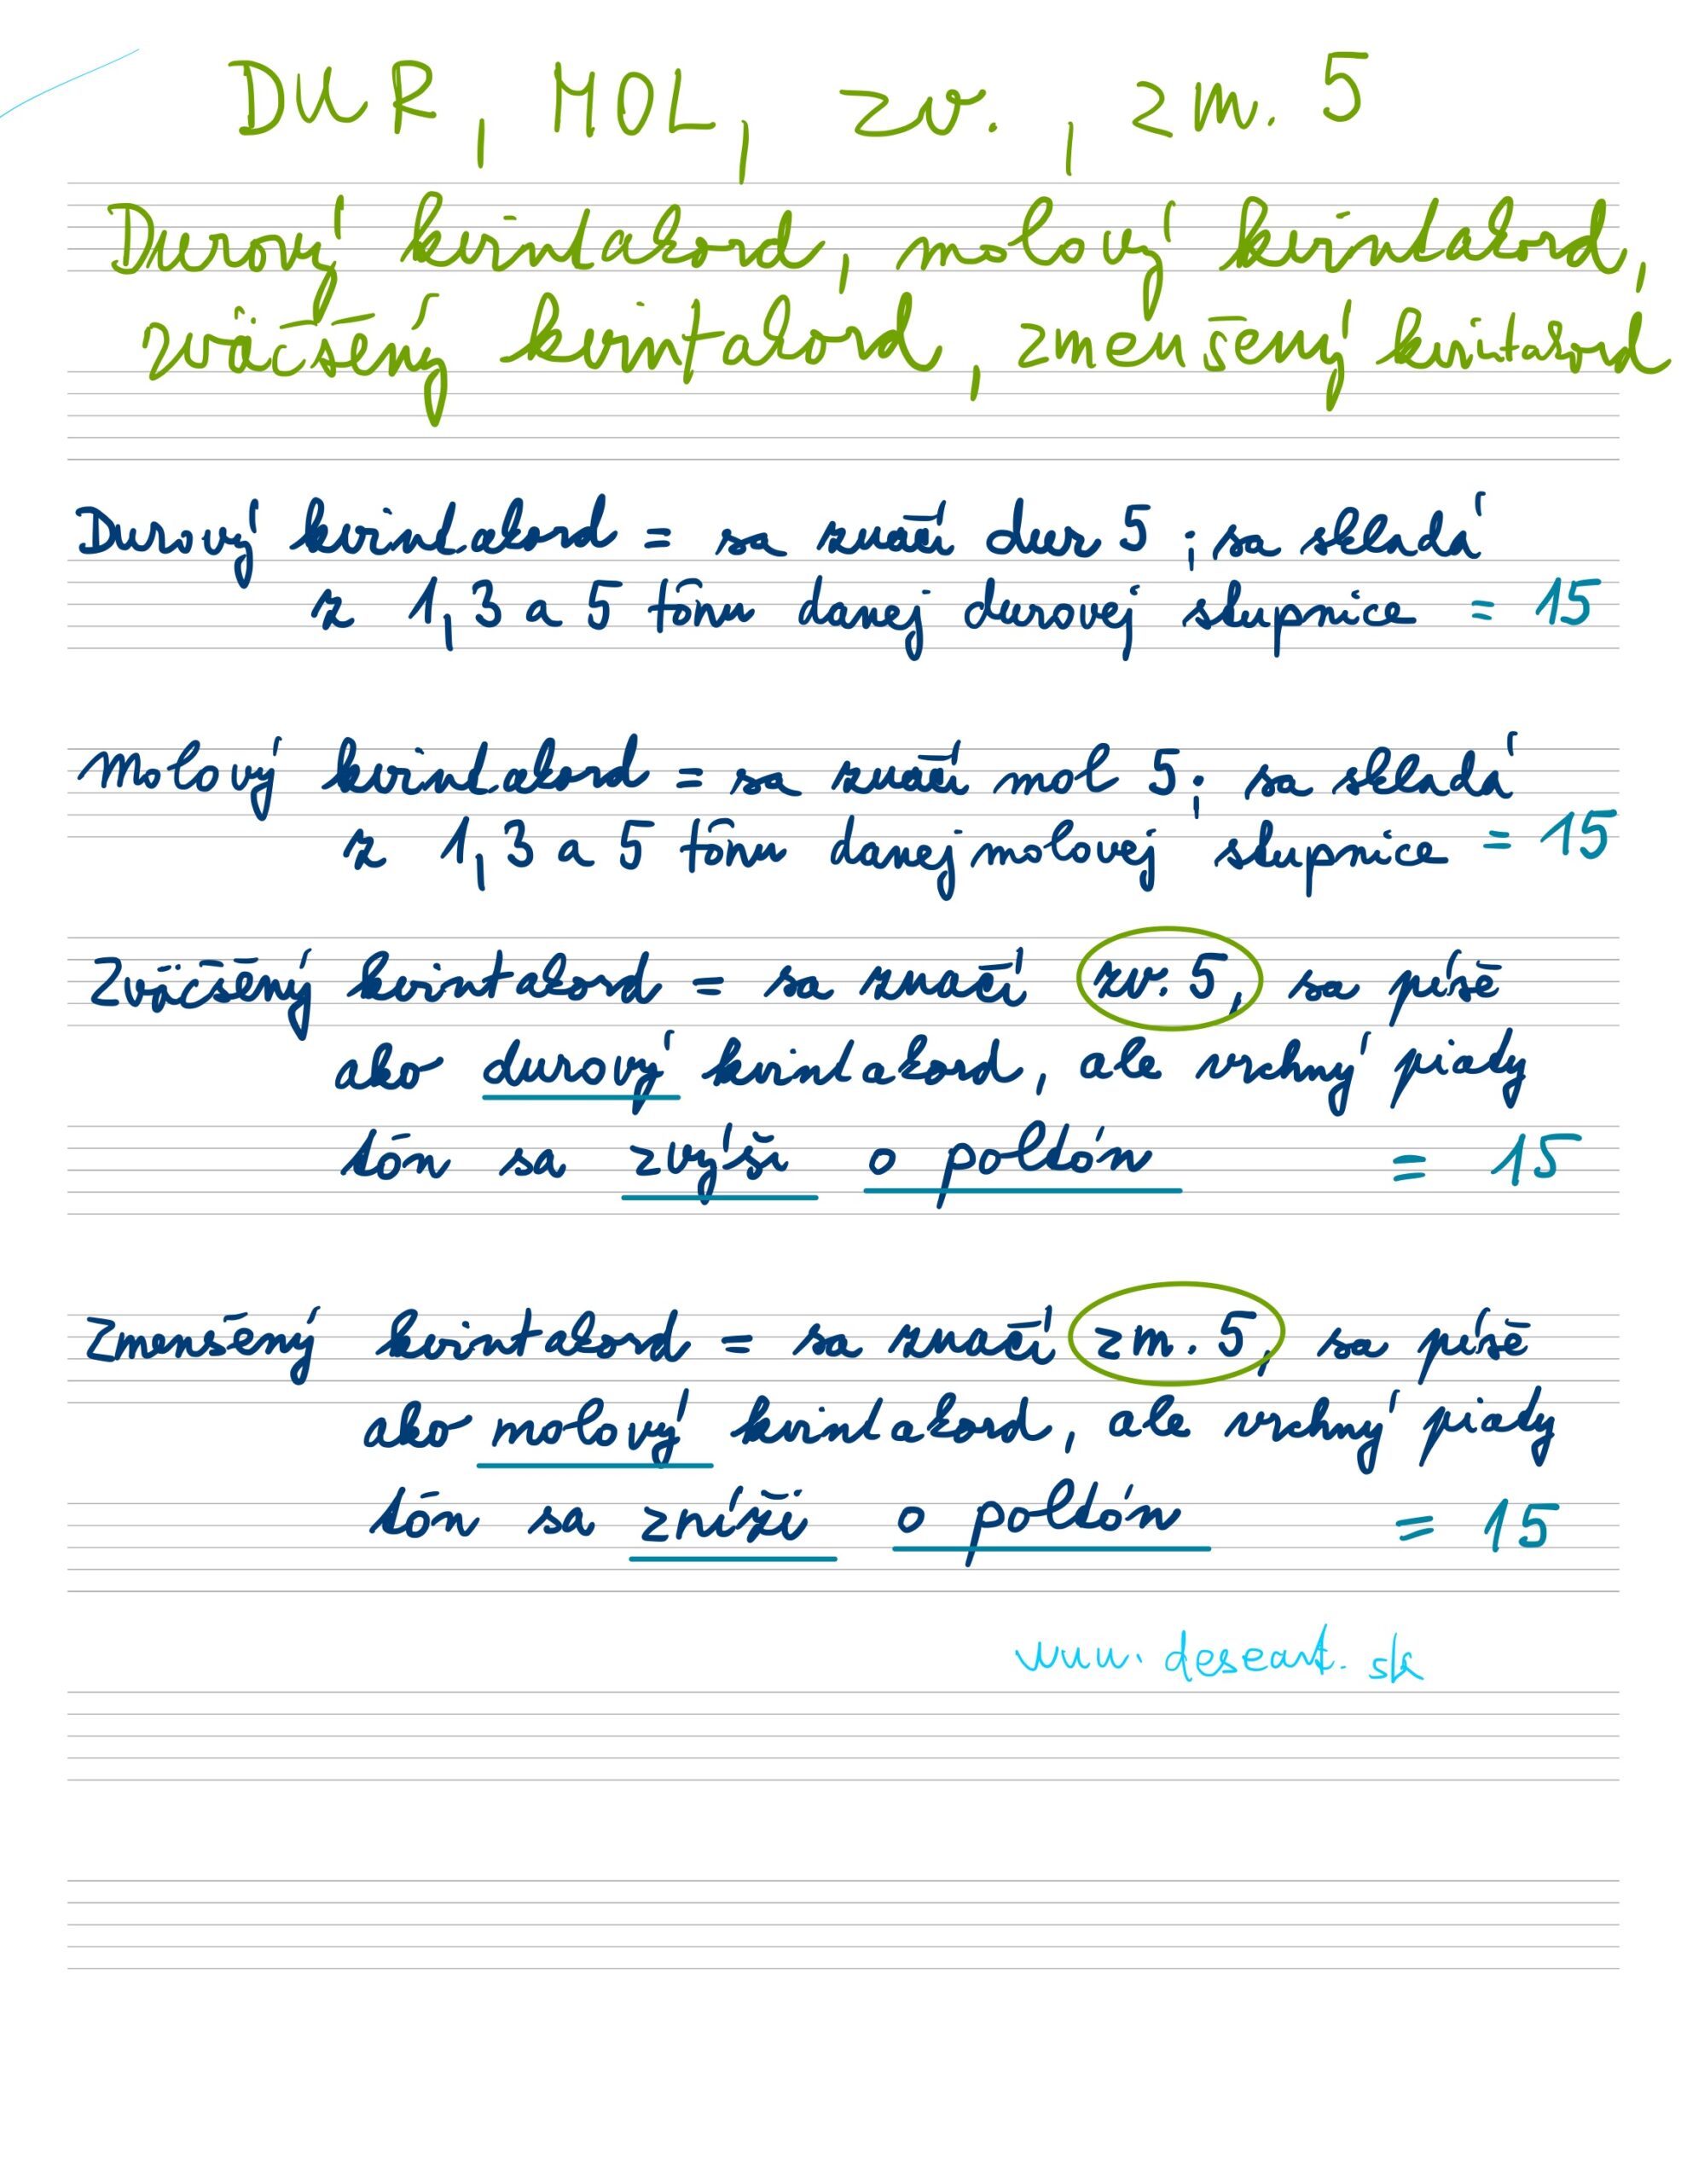 DUR, MOL, zv., zm. 5
Durový kvintakord, molový kvintakord,
zväčšený kvintakord, zmenšený kvitakord
Durový kvintakord = sa značí dur 5; sa skladá
z 1,3 a 5 tónu danej durovej stupnice = 15
Molový kvintakord = sa značí mol 5; sa skladá
z 1,3 a 5 tónu danej molovej stupnice = 15
Zväčšený kvintakord = sa značí zv. 5, sa píše
ako durový kvintakord, ale vrchný piaty
tón sa zvýši o poltón = 15
Zmenšený kvintakord = sa značí zm. 5, sa píše
ako molový kvintakord, ale vrchný piaty
tón sa zníži o poltón = 15